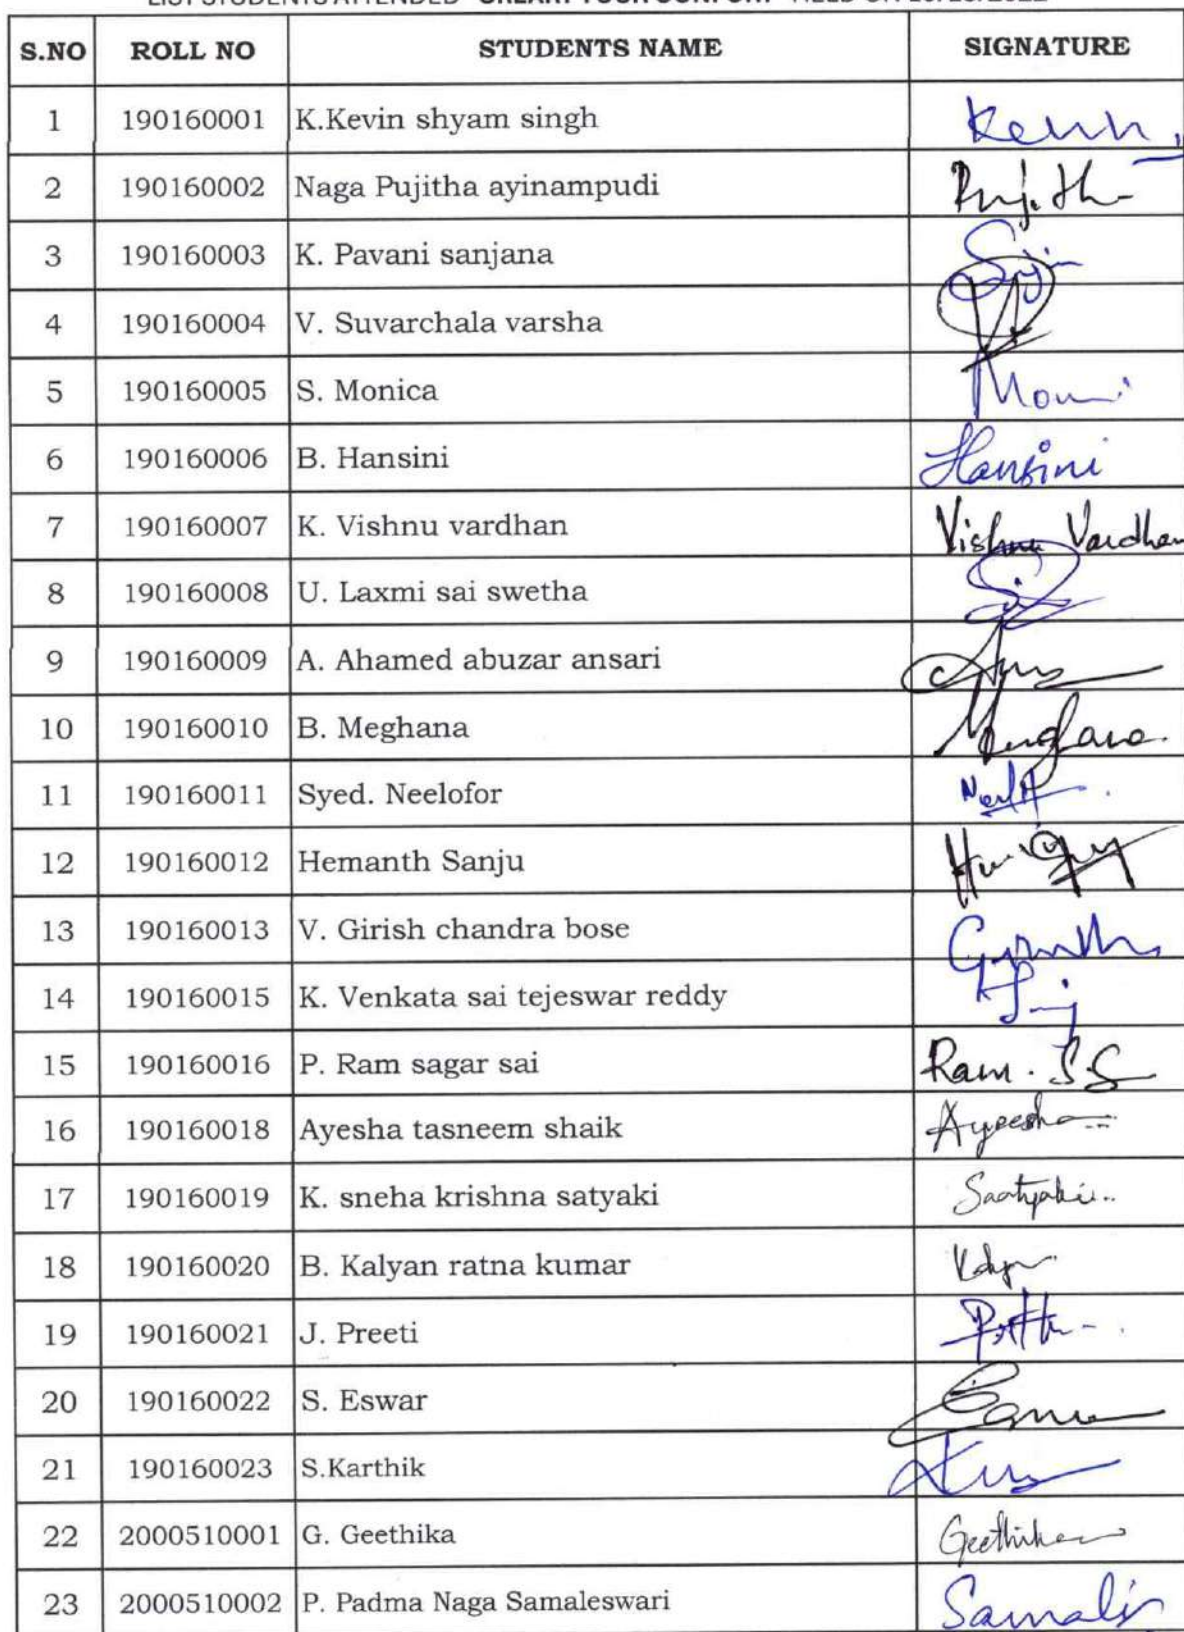 S.NO ROLL NO STUDENTS NAME SIGNATURE
1 190160001 K.Kevin shyam singh
2 190160002 Naga Pujitha ayinampudi
3 190160003 K. Pavani sanjana
4 190160004 V. Suvarchala varsha
5 190160005 S. Monica
6 190160006 B. Hansini Hansini
7 190160007 K. Vishnu vardhan Vishnu Vardhan
8 190160008 U. Laxmi sai swetha
9 190160009 A. Ahamed abuzar ansari
10 190160010 B. Meghana
11 190160011 Syed. Neelofor
12 190160012 Hemanth Sanju
13 190160013 V. Girish chandra bose
14 190160015 K. Venkata sai tejeswar reddy
15 190160016 P. Ram sagar sai Ram. S S
16 190160018 Ayesha tasneem shaik Ayeesha
17 190160019 K. sneha krishna satyaki Saatyaki..
18 190160020 B. Kalyan ratna kumar
19 190160021 J. Preeti
20 190160022 S. Eswar
21 190160023 S.Karthik
22 2000510001 G. Geethika Geethika
23 2000510002 P. Padma Naga Samaleswari